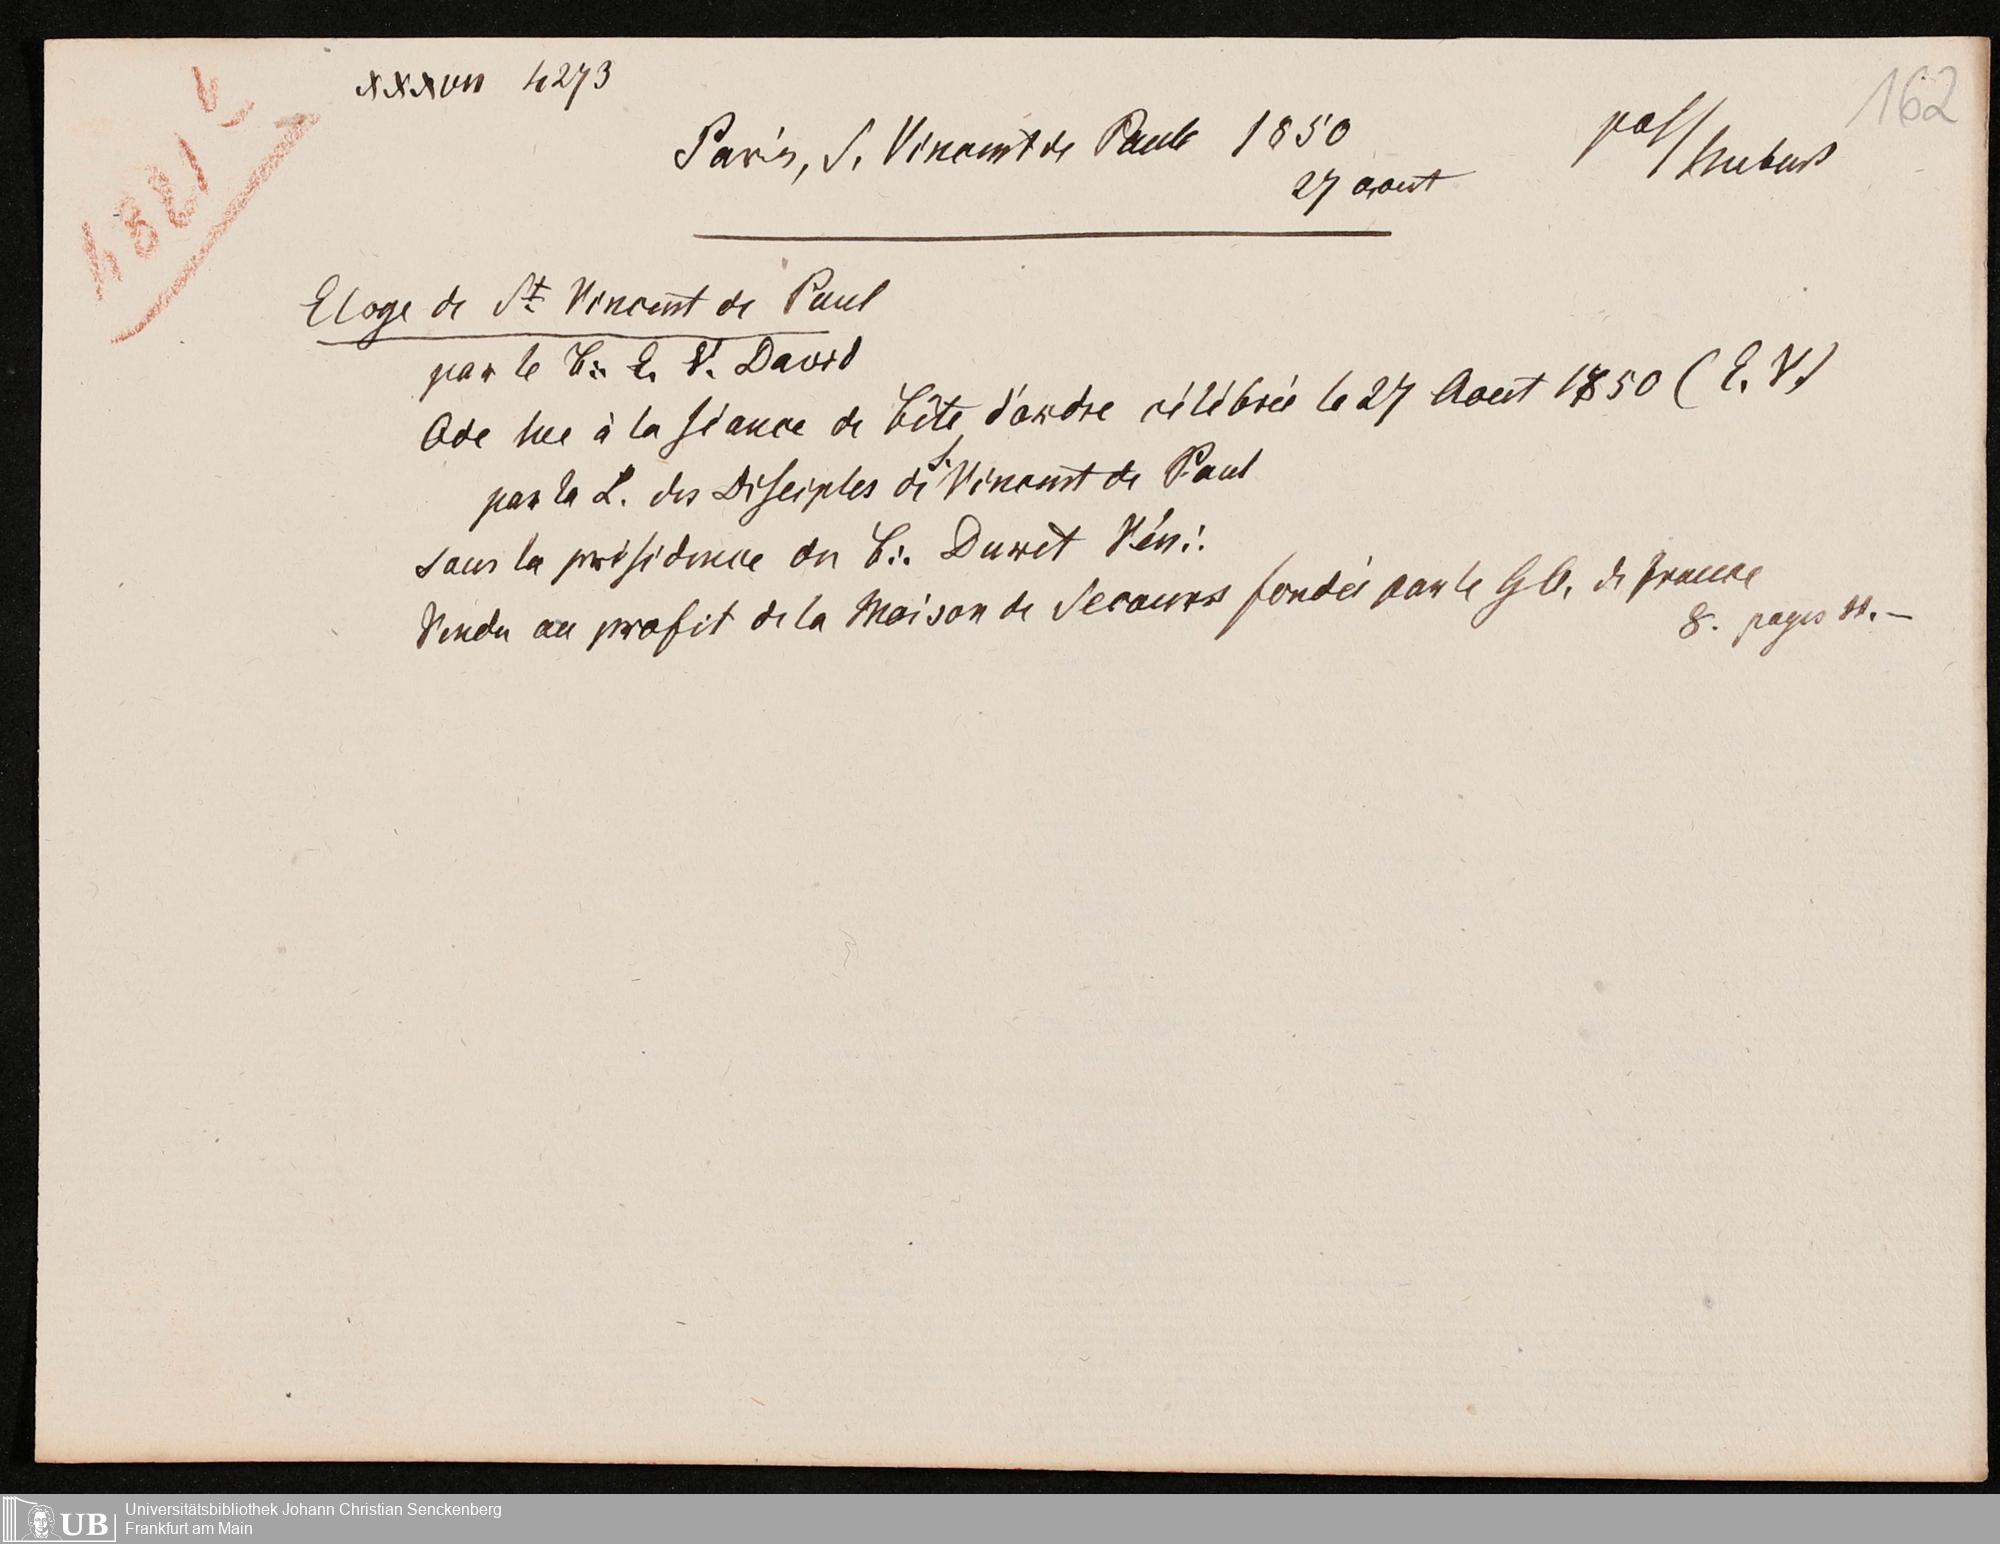 XXXVII 4273
162
Paris, S. Vincent de Paule 1850
27 aout
Eloge de St Vincent de Paul
par le f∴ E. V. David
Ode lue à la séance de fête d'ordre célébrée le 27 Aout 1850 (E. V.)
par la L. des Disciples de S. Vincent de Paul
sous la présidence du f∴ Duret Vén∴
Vendu au profit de la Maison de Secours fondée par le G O. de France
8. pages
Universitätsbibliothek Johann Christian Senckenberg
Frankfurt am Main
UB